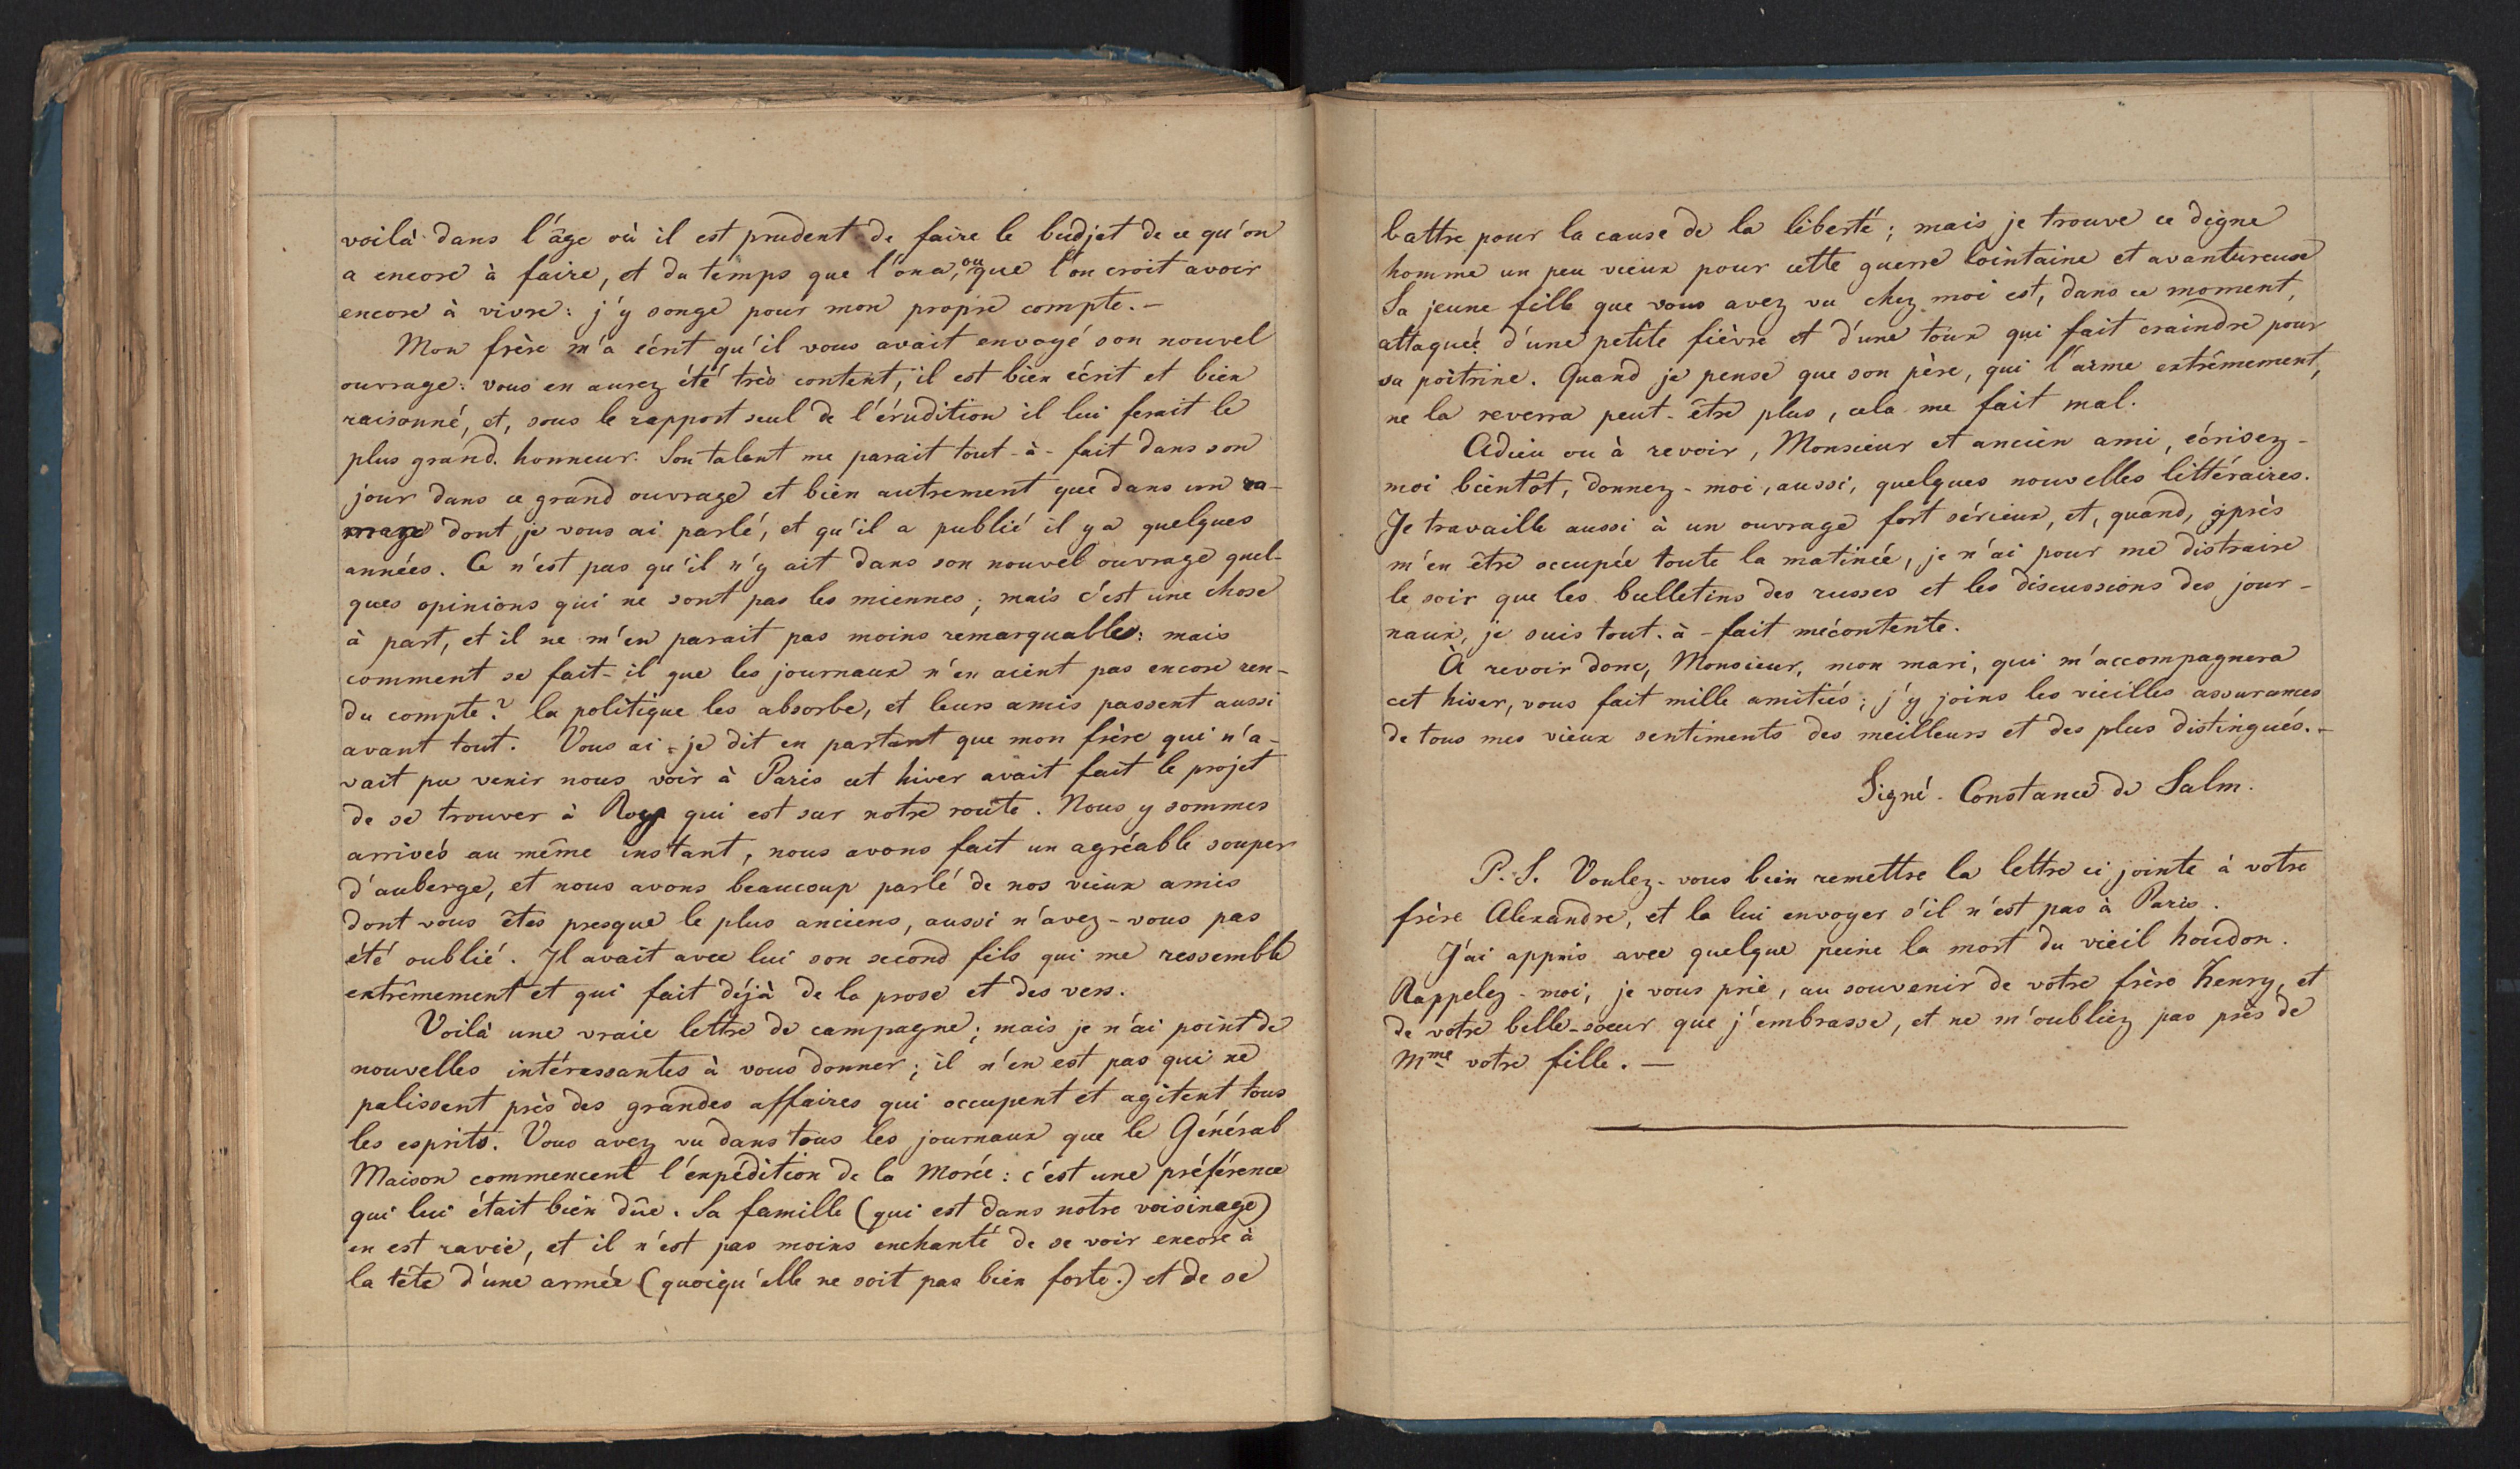 voilà dans l'âge où il est prudent de faire le budjet de ce qu'on
a encore à faire, et du temps que l'on a, ou que l'on croit avoir
encore à vivre : j'y songe pour mon propre compte. -
Mon frère m'a écrit qu'il vous avait envoyé son nouvel
ouvrage : vous en aurez été très content, il est bien écrit et bien
raisonné, et, sous le rapport seul de l'érudition il lui ferait le
plus grand honneur. Son talent me parait tout-à-fait dans son
jour dans ce grand ouvrage et bien autrement que dans un
dont je vous ai parlé, et qu'il a publié il y a quelques
années. Ce n'est pas qu'il n'y ait dans son nouvel ouvrage quel-
ques opinions qui ne sont pas les miennes ; mais c'est une chose
à part, et il ne m'en parait pas moins remarquable : mais
comment se fait-il que les journaux n'en aient pas encore ren-
du compte ? la politique les absorbe, et leurs amis passent aussi
avant tout. Vous ai-je dit en partant que mon frère qui n'a-
vait pu venir nous voir à Paris cet hiver avait fait le projet
de se trouver à Roye qui est sur notre route. Nous y sommes
arrivés au même instant, nous avons fait un agréable souper
d'auberge, et nous avons beaucoup parlé de nos vieux amis
dont vous êtes presque le plus anciens, aussi n'avez-vous pas
été oublié. Il avait avec lui son second fils qui me ressemble
extrêmement et qui fait déjà de la prose et des vers.
Voilà une vraie lettre de campagne ; mais je n'ai point de
nouvelles intéressantes à vous donner ; il n'en est pas qui ne
palissent près des grandes affaires qui occupent et agitent tous
les esprits. Vous avez vu dans tous les journaux que le Général
Maison commencent l'expédition de la Morée : c'est une préférence
qui lui était bien dûe. Sa famille (qui est dans notre voisinage)
en est ravie, et il n'est pas moins enchanté de se voir encore à
la tête d'une armée (quoiqu'elle ne soit pas bien forte.) et de se
battre pour la cause de la liberté ; mais je trouve ce digne
homme un peu vieux pour cette guerre lointaine et avantureuse
Sa jeune fille que vous avez vu chez moi est, dans ce moment,
attaquée d'une petite fièvre et d'une toux qui fait craindre pour
sa poitrine. Quand je pense que son père, qui l'aime extrêmement,
ne la reverra peut-être plus, cela me fait mal.
Adieu ou à revoir, Monsieur et ancien ami, écrisez-
moi bientôt, donnez-moi, aussi, quelques nouvelles littéraires.
Je travaille aussi à un ouvrage fort sérieux, et, quand, après
m'en être occupée toute la matinée, je n'ai pour me distraire
le soir que les bulletins des russes et les discussions des jour-
naux, je suis tout-à-fait mécontente.
À revoir donc, Monsieur, mon mari, qui m'accompagnera
cet hiver, vous fait mille amitiés ; j'y joins les vieilles assurances
de tous mes vieux sentiments des meilleurs et des plus distingués. -
Signé - Constance de Salm.
P. S. Voulez-vous bien remettre la lettre ci jointe à votre
frère Alexandre, et la lui envoyer s'il n'est pas à Paris.
J'ai appris avec quelque peine la mort du vieil houdon.
Rappelez-moi, je vous prie, au souvenir de votre frère henry, et
de votre belle-soeur que j'embrasse, et ne m'oubliez pas près de
Mme votre fille. -